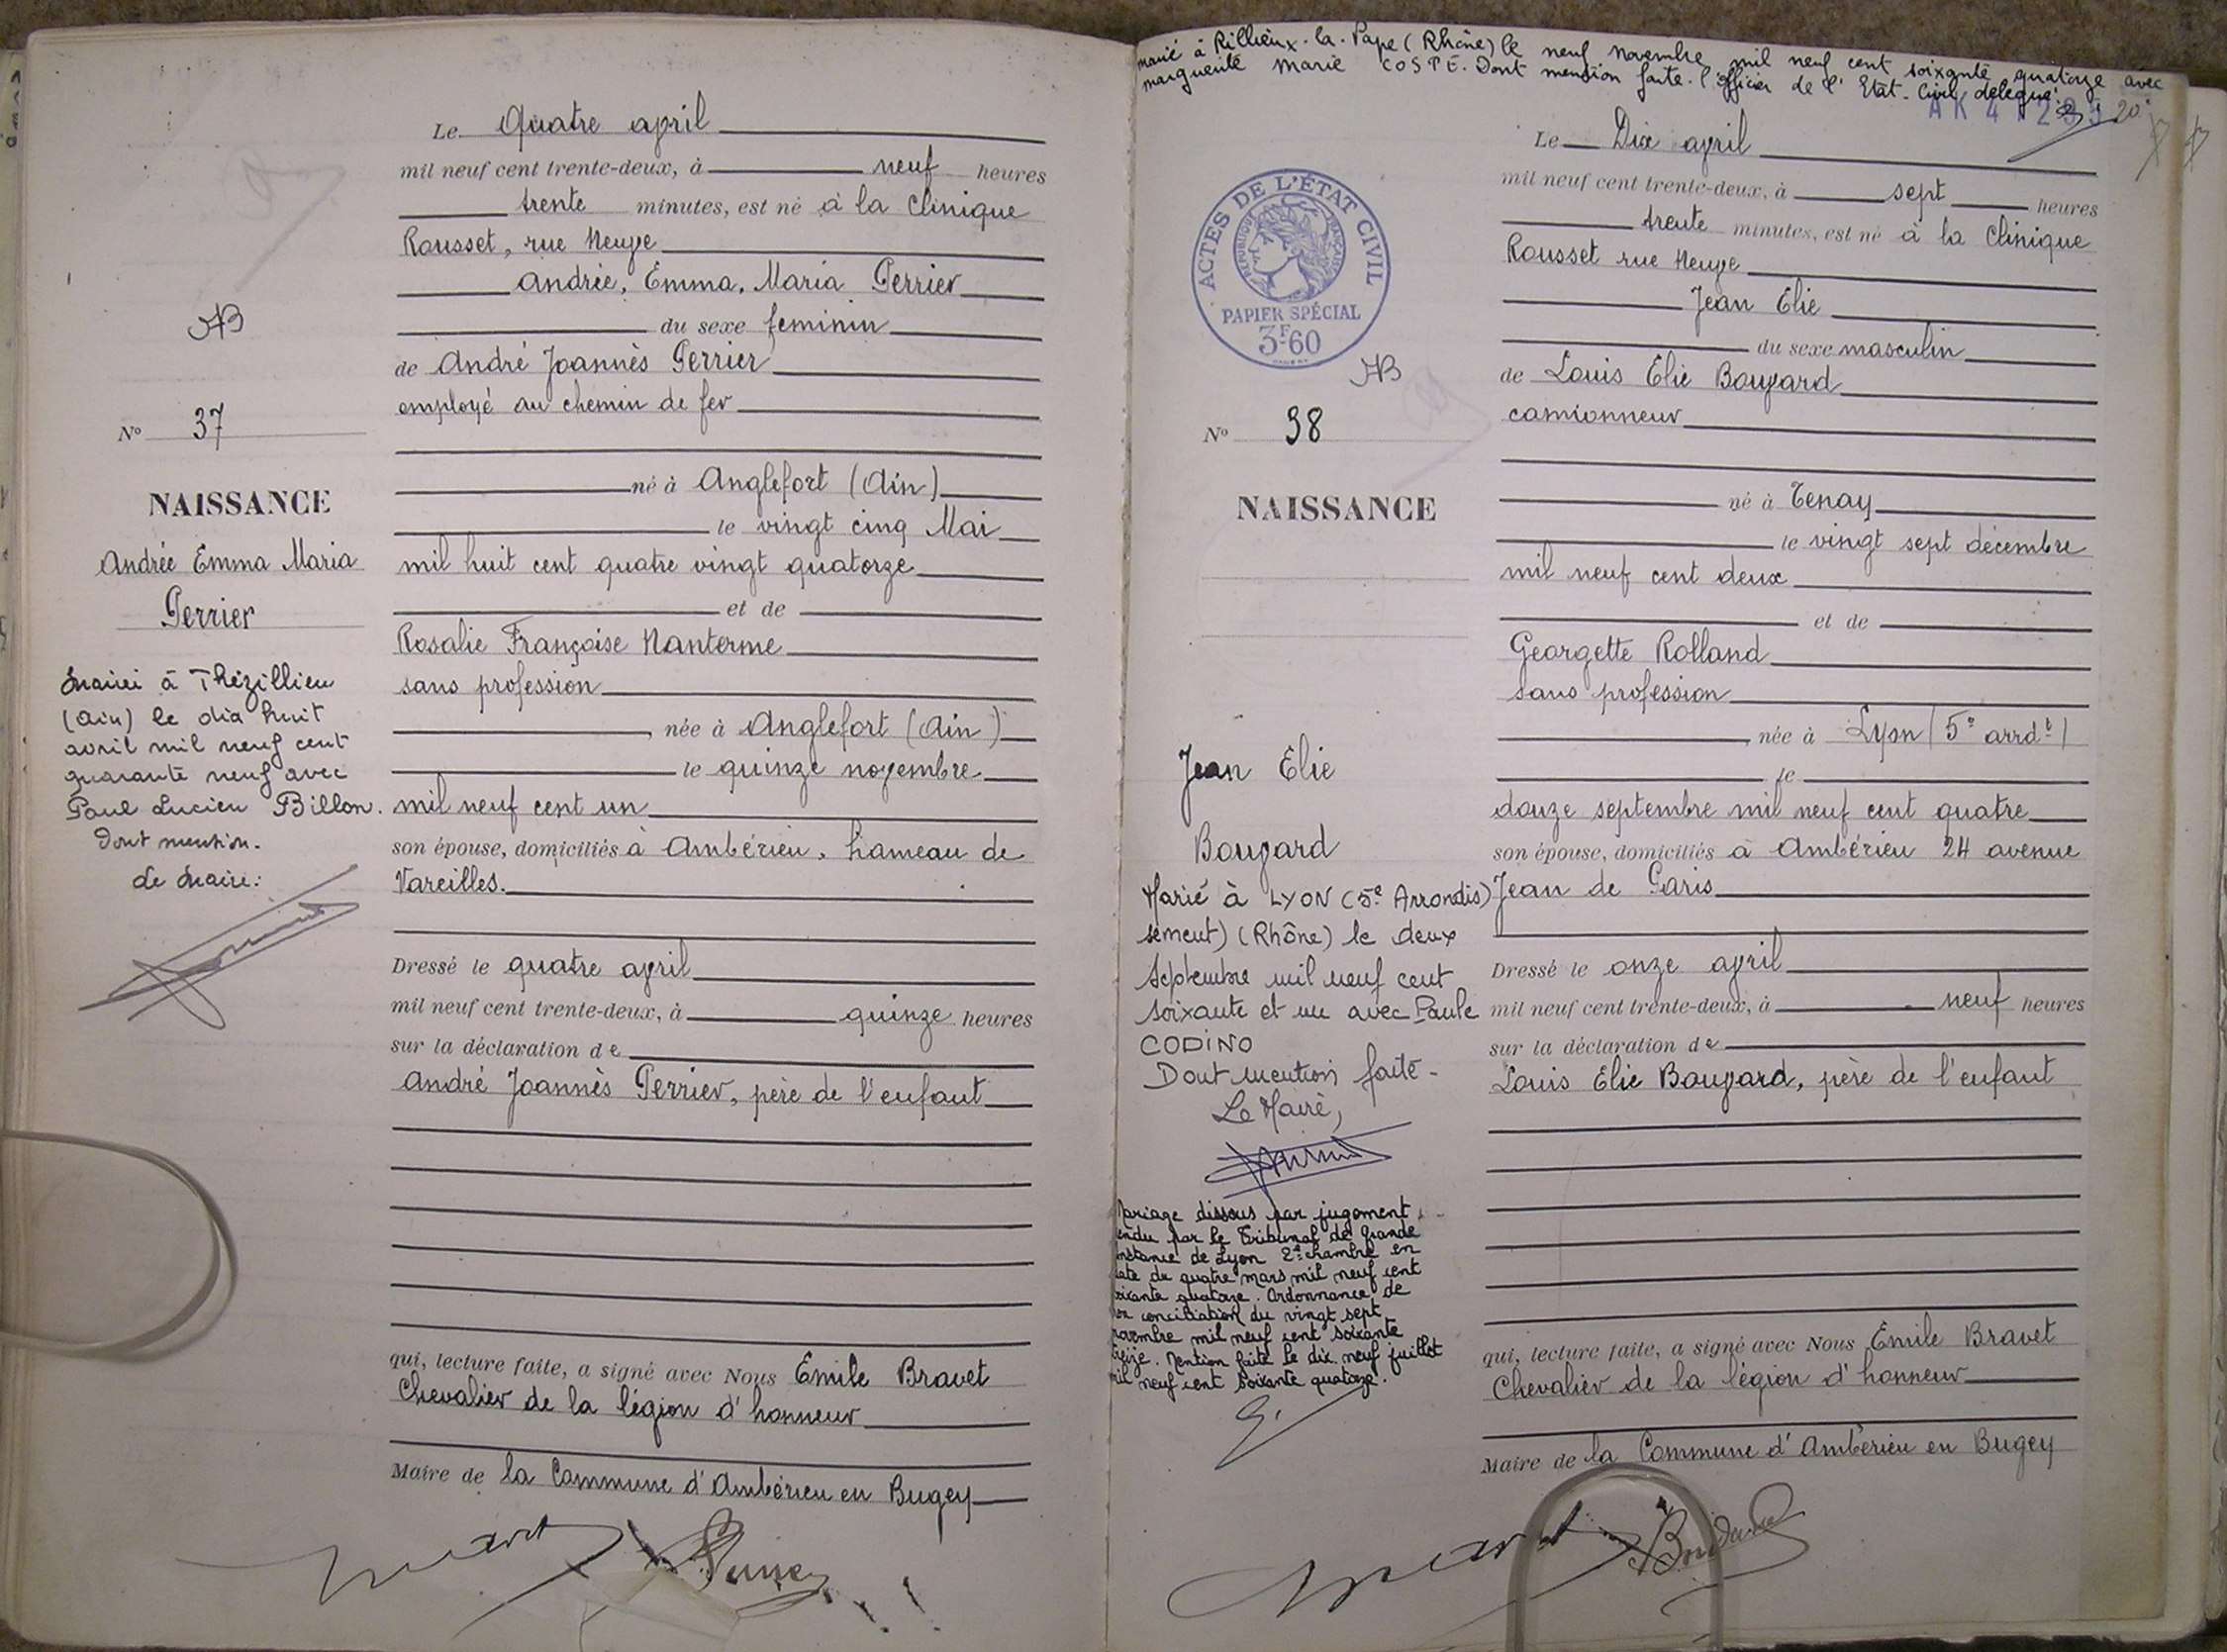 Le Quatre april
mil neuf cent trente-deux, à neuf heures
trente minutes, est né à la Clinique
Rousset, rue Neuve
Andrée, Emma, Maria Perrier
du sexe feminin
de André Joannès Perrier
employé au chemin de fer
né à Anglefort (Ain)
le vingt cinq Mai
mil huit cent quatre vingt quatorze
et de
Rosalie Françoise Nanterme
sans profession
, née à Anglefort (Ain)
le quinze novembre
mil neuf cent un
son épouse, domiciliés à Ambérieu, hameau de
Vareilles.
Dressé le quatre april
mil neuf cent trente-deux, à quinze heures
sur la déclaration de
André Joannès Perrier, père de l'enfant
qui, lecture faite, a signé avec Nous Emile Bravet
Chevalier de la légion d'honneur
Maire de la Commune d'Ambérieu en Bugey
AB
No 37
NAISSANCE
Andrée Emma Maria
Perrier
Mariée à Thézillieu
(Ain) le dix huit
avril mil neuf cent
quarante neuf avec
Paul Lucien Billon.
Dont mention.
Le Maire:
marié à Rillieux-la-Pape (Rhône) le neuf novembre mil neuf cent soixante quatorze avec
marguerite Marie COSTE. Dont mention faite. l'officier de l'Etat-Civil délégué.
Le Dix april
mil neuf cent trente-deux, à sept heures
trente minutes, est né à la Clinique
Rousset rue Neuve
Jean Elie
du sexe masculin
de Louis Elie Bouvard
camionneur
né à Tenay
le vingt sept décembre
mil neuf cent deux
et de
Georgette Rolland
sans profession
, née à Lyon (5e arrdt)
le
douze septembre mil neuf cent quatre
son épouse, domiciliés à Ambérieu 24 avenue
Jean de Paris
Dressé le onze april
mil neuf cent trente-deux, à neuf heures
sur la déclaration de
Louis Elie Bouvard, père de l'enfant
qui, lecture faite, a signé avec Nous Emile Bravet
Chevalier de la légion d'honneur
Maire de la Commune d'Ambérieu en Bugey
ACTES DE L'ÉTAT CIVIL
RÉPUBLIQUE FRANÇAISE
PAPIER SPÉCIAL
3F60
AB
No 38
NAISSANCE
Jean Elie
Bouvard
Marié à LYON (5e Arrondis)
sement) (Rhône) le deux
Septembre mil neuf cent
soixante et un avec Paule
CODINO
Dont mention faite -
Le Maire,
Mariage dissous par jugement
rendu par le Tribunal de Grande
instance de Lyon 2e chambre en
date du quatre mars mil neuf cent
soixante quatorze. Ordonnance de
non conciliation du vingt sept
novembre mil neuf cent soixante
treize. Mention faite le dix neuf juillet
mil neuf cent soixante quatorze.